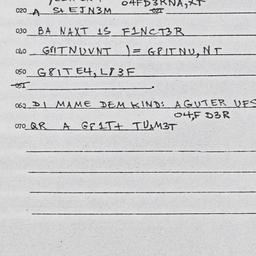 04FD3RNA,XT
020 A S+EJN3M
030 BA NAXT IS F1NCT3R
040 GAITNUVNT )= GPITNU,NT
050 G8ITE4,L83F
051
062 DI MAME DEM KIND: A GUTER UFS
04,F D3R
070 QR A GF1T+ TU,M3T